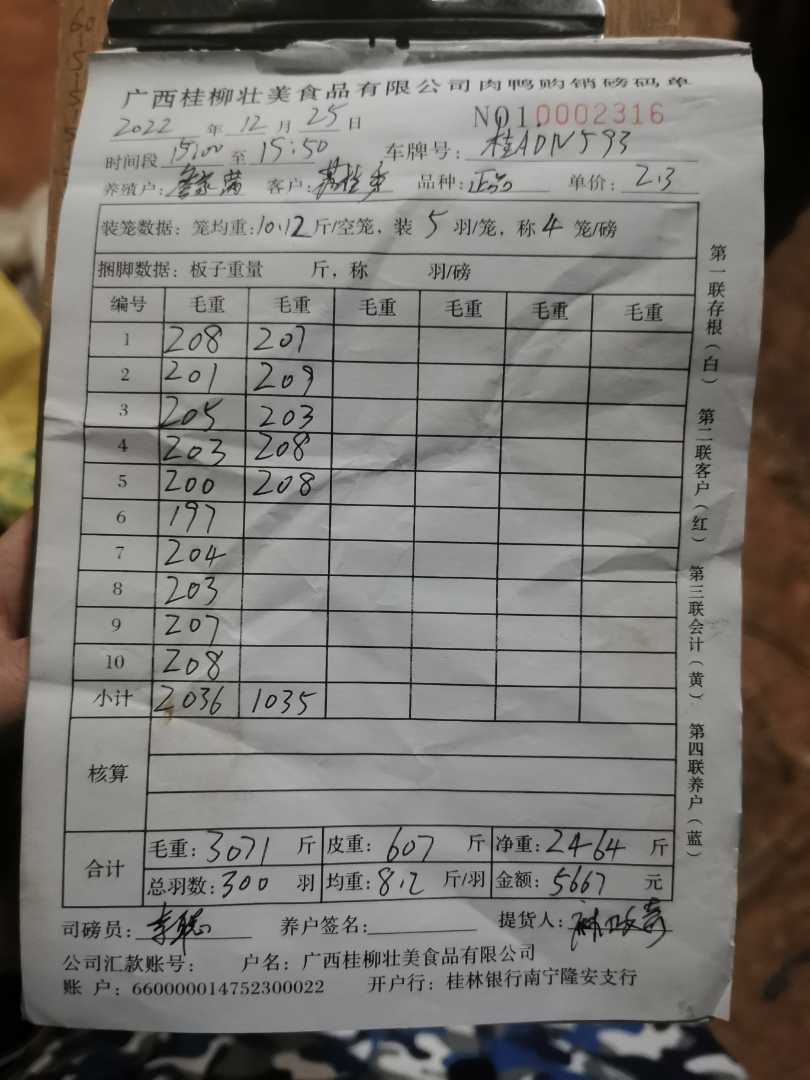 广西桂柳壮美食品有限公司肉鸭购销磅码单
2022年12月25日 NO1.0002316
时间段15:00至15:50 车牌号:桂ADN593
养殖户: 客户: 品种:正品 单价:2.3
装笼数据:笼均重:10.12斤/空笼,装5羽/笼,称4笼/磅
捆脚数据:板子重量 斤,称 羽/磅
编号 毛重 毛重 毛重 毛重 毛重 毛重
1 208 207
2 201 209
3 205 203
4 203 208
5 200 208
6 197
7 204
8 203
9 207
10 208
小计 2036 1035
核算
合计 毛重:3071斤 皮重:607斤 净重:2464斤
总羽数:300羽 均重:8.2斤/羽 金额:5667元
司磅员: 养户签名: 提货人:
公司汇款账号: 户名:广西桂柳壮美食品有限公司
账 户:660000014752300022 开户行:桂林银行南宁隆安支行
第一联存根(白) 第二联客户(红) 第三联会计(黄) 第四联养户(蓝)